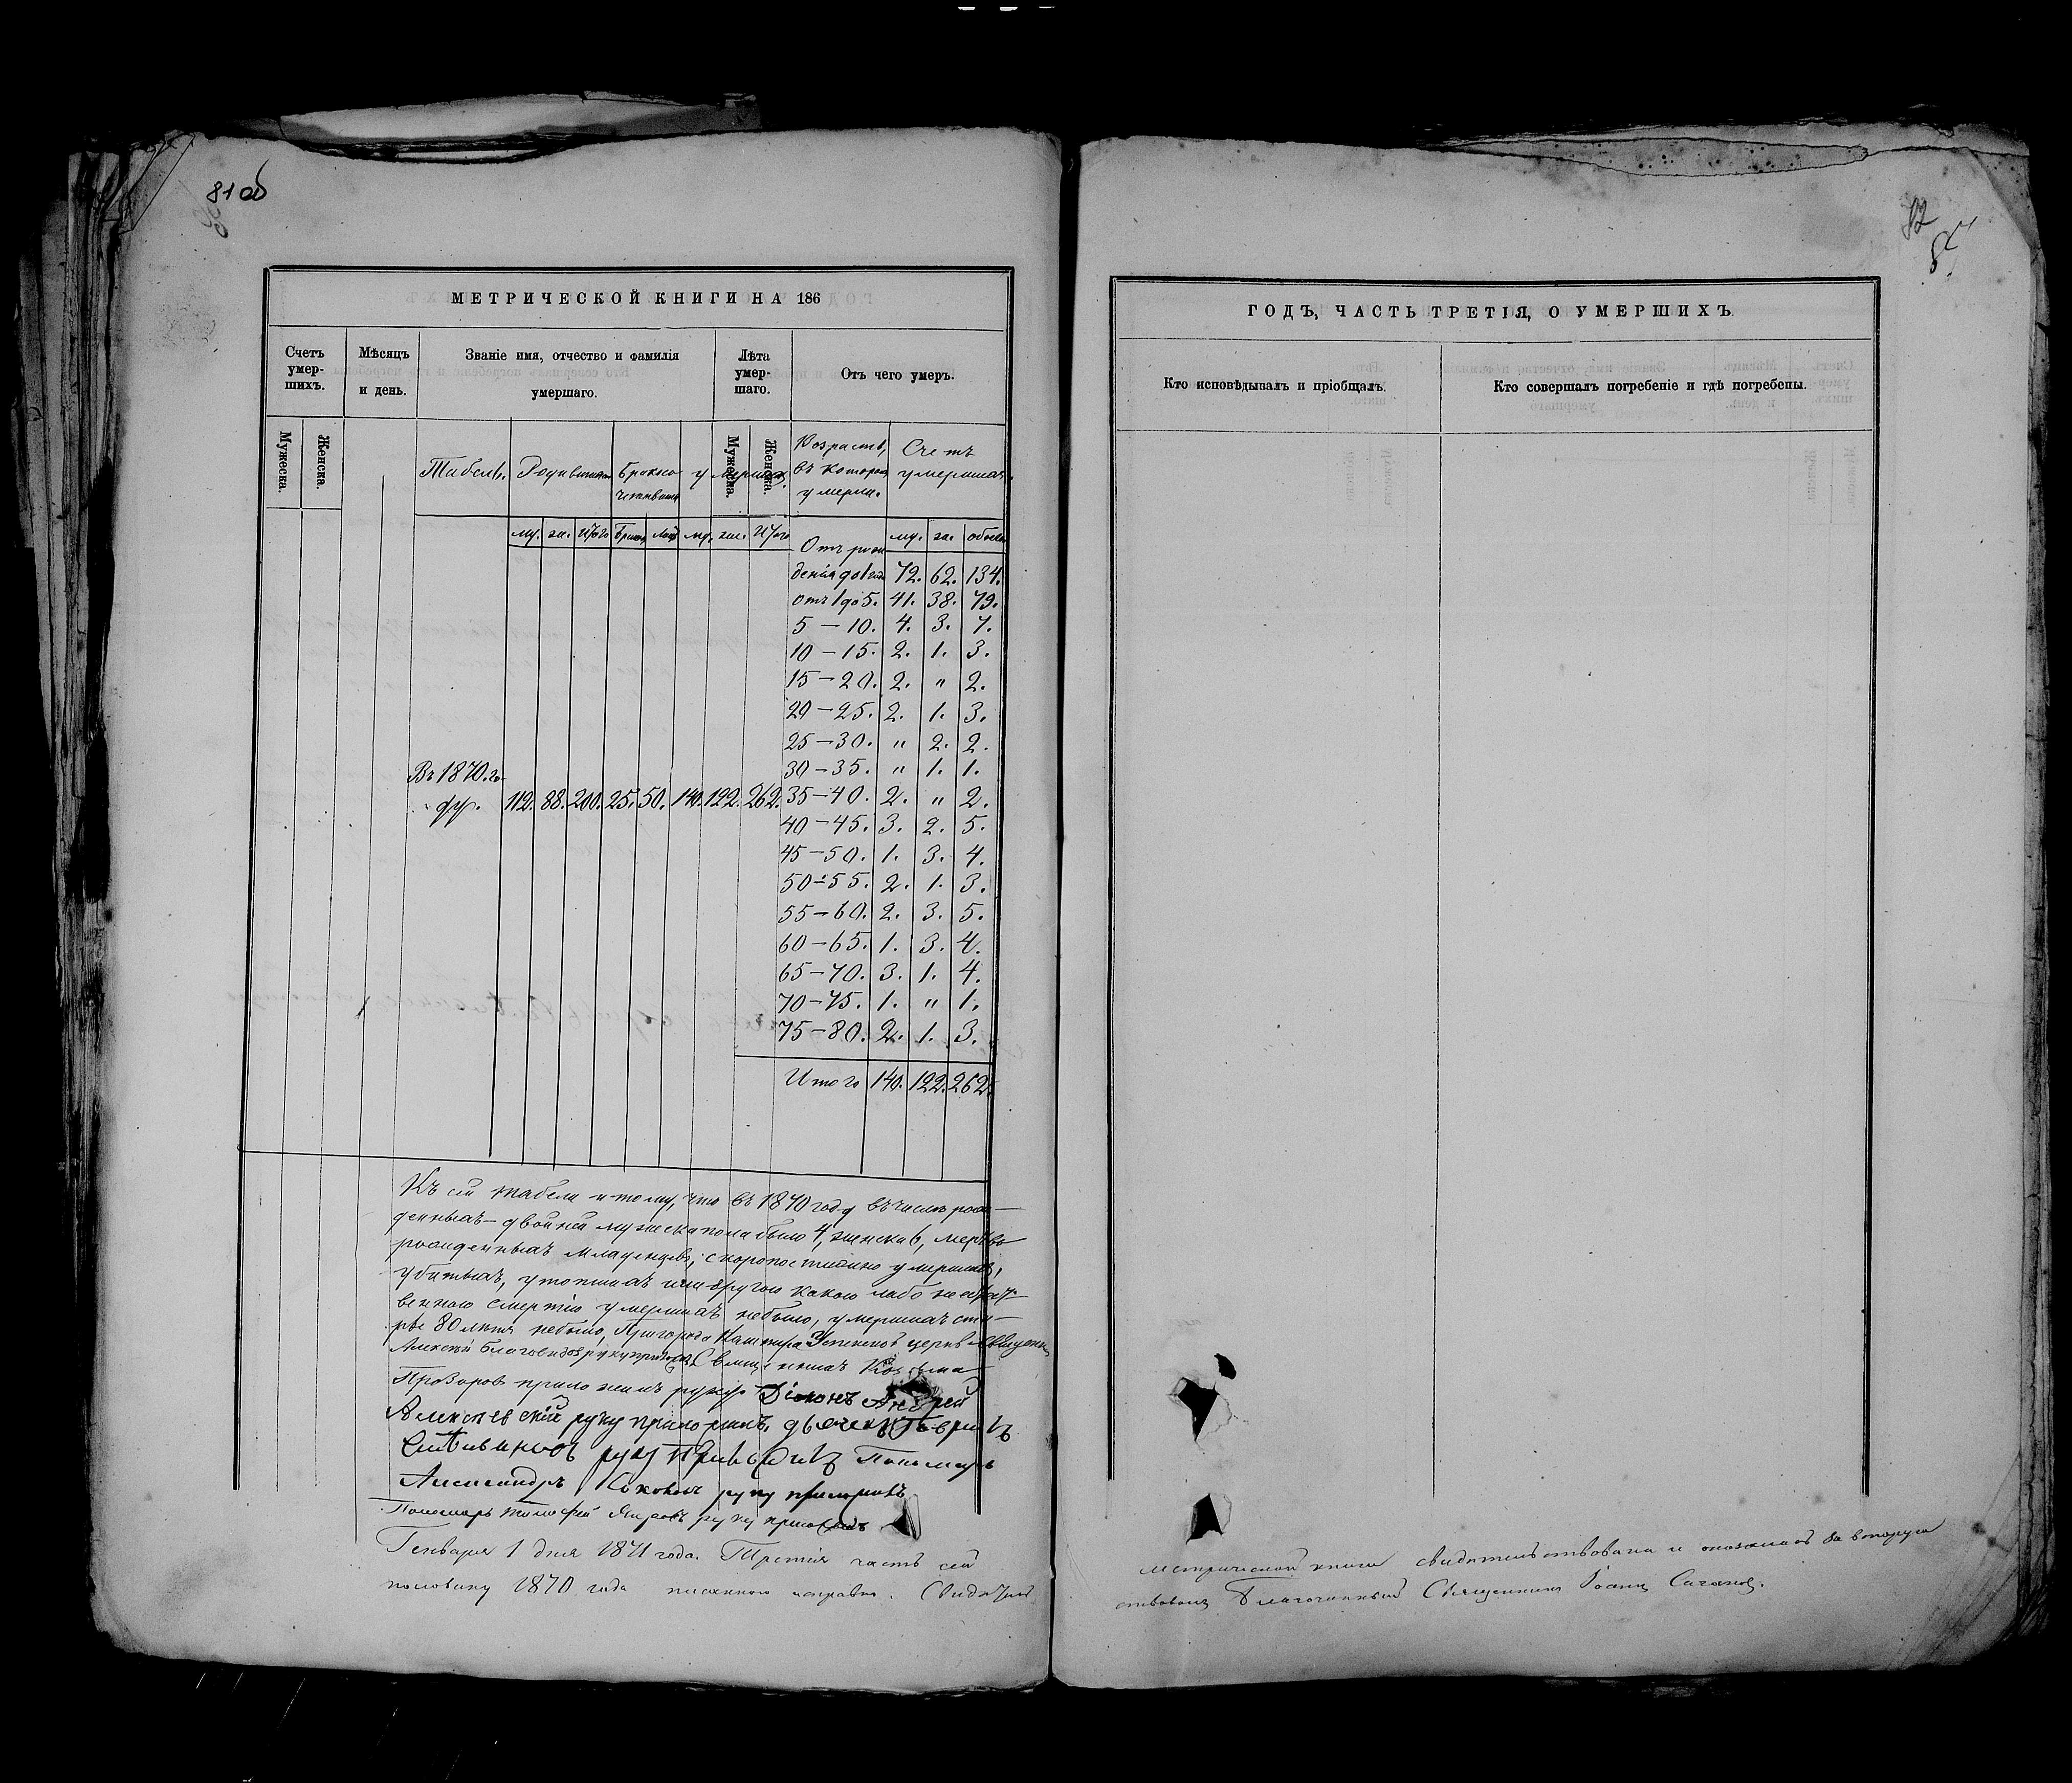 81 об
МЕТРИЧЕСКОЙ КНИГИ НА 186
Счетъ умер-шихъ.
Мѣсяцъ и день.
Званіе имя, отчество и фамилія умершаго.
Лѣта умер-шаго.
Отъ чего умеръ.
Мужеска. Женска.
Мужеска. Женска.
Табель. Родившихся Бракосочетавших умерших. Возрастъ, въ которомъ умерли. Счетъ умершихъ.
му. же. Итого Браков лицъ му. же. Итого му. же. обоего
Отъ рож
денія до 1 года 72. 62. 134.
отъ 1 до 5. 41. 38. 79.
5 — 10. 4. 3. 7.
10 — 15. 2. 1. 3.
15 — 20. 2. " 2.
20 — 25. 2. 1. 3.
25 — 30. " 2. 2.
30 — 35. " 1. 1.
Въ 1870. го-
ду. 112. 88. 200. 25. 50. 140. 122. 262. 35 — 40. 2. " 2.
40 — 45. 3. 2. 5.
45 — 50. 1. 3. 4.
50 — 55. 2. 1. 3.
55 — 60. 2. 3. 5.
60 — 65. 1. 3. 4.
65 — 70. 3. 1. 4.
70 — 75. 1. " 1.
75 — 80. 2. 1. 3.
Итого 140. 122. 262.
Къ сей табели и тому, что въ 1870 году въ числѣ рож—
денныхъ — двойней мужеска пола было 4, женска 6, мертво
рожденныхъ младенцевъ, скоропостижно умершихъ,
убитыхъ, утопшихъ или другою какою либо неестест
венною смертію умершихъ небыло, умершихъ ста—
рѣе 80 лѣтъ небыло, Пригорода Успенской церкви Священник
Алексѣй Благовидовъ руку приложилъ. Священникъ Козьма
Прозоровъ приложилъ руку. Діаконъ Андрей
Алексѣевскій руку приложилъ. дьячекъ Гавріилъ
руку приложилъ Пономарь
Александръ руку приложилъ
Пономарь Тимофей руку приложилъ
Генваря 1 дня 1871 года. Третія часть сей
половину 1870 года писанною исправно. Свидѣтель
82
ГОДЪ, ЧАСТЬ ТРЕТІЯ, О УМЕРШИХЪ
Кто исповѣдывалъ и пріобщалъ.
Кто совершалъ погребеніе и гдѣ погребены.
метрической книги свидѣтельствована и оказалась за вторую
ствовалъ Благочинный Священникъ Іоаннъ